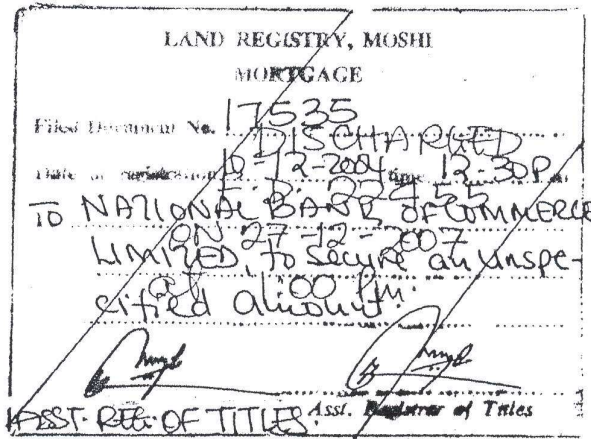 LAND REGISTRY, MOSHI
MORTGAGE
Filed Document No. 17535
DISCHARGED
Date of registration 10-12-2004 time 12-30P m
F.D.
TO NATIONAL BANK OF COMMERCE
ON 27-12-2007
LIMITED, to secure an unspe-
cified amount.
at 1:00 pm.
ASST. REG. OF TITLES. Asst. Registrar of Titles